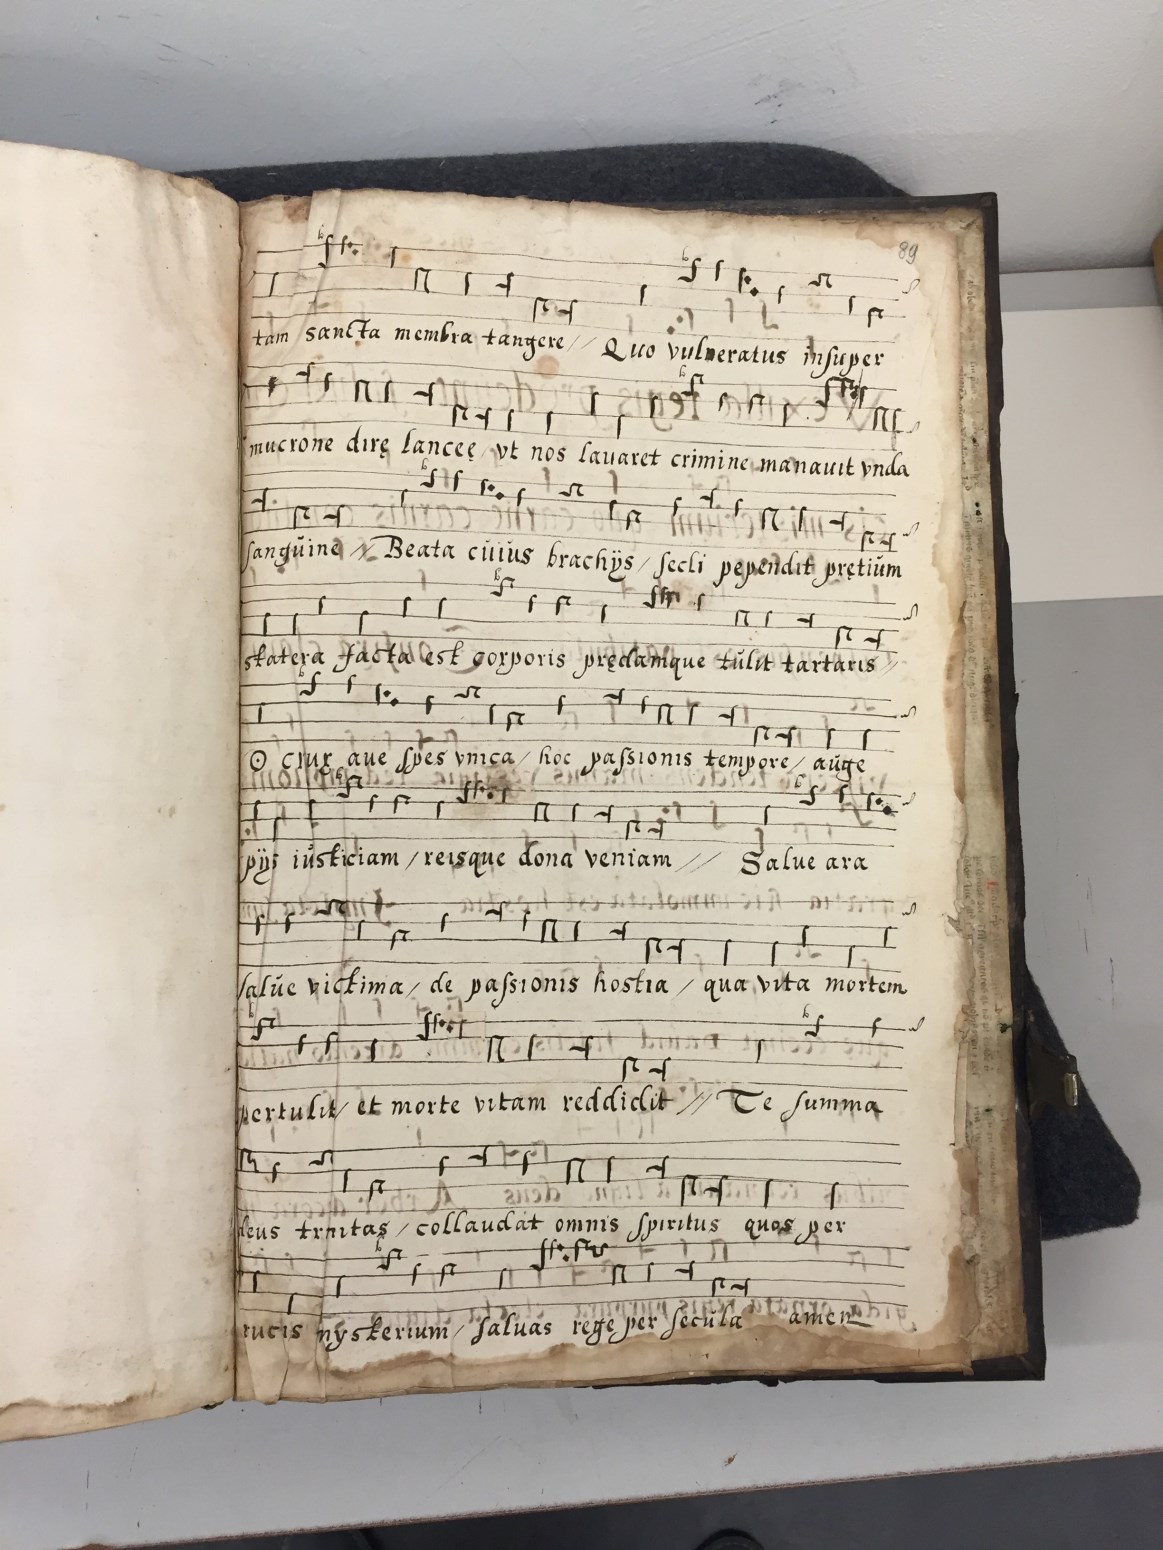 89
tam sancta membra tangere // Quo vulneratus insuper
mucrone dirę lanceę / vt nos lauaret crimine manauit vnda
sanguine // Beata cuius brachÿs / secli pependit pretium
statera facta est corporis prędamque tulit tartaris //
O crux aue spes vnica / hoc passionis tempore / auge
pÿs iusticiam / reisque dona veniam // Salue ara
salue victima / de passionis hostia / qua vita mortem
pertulit / et morte vitam reddidit // Te summa
deus trnitas / collaudat omnis spiritus quos per
rucis mÿsterium / saluas rege per secula amen